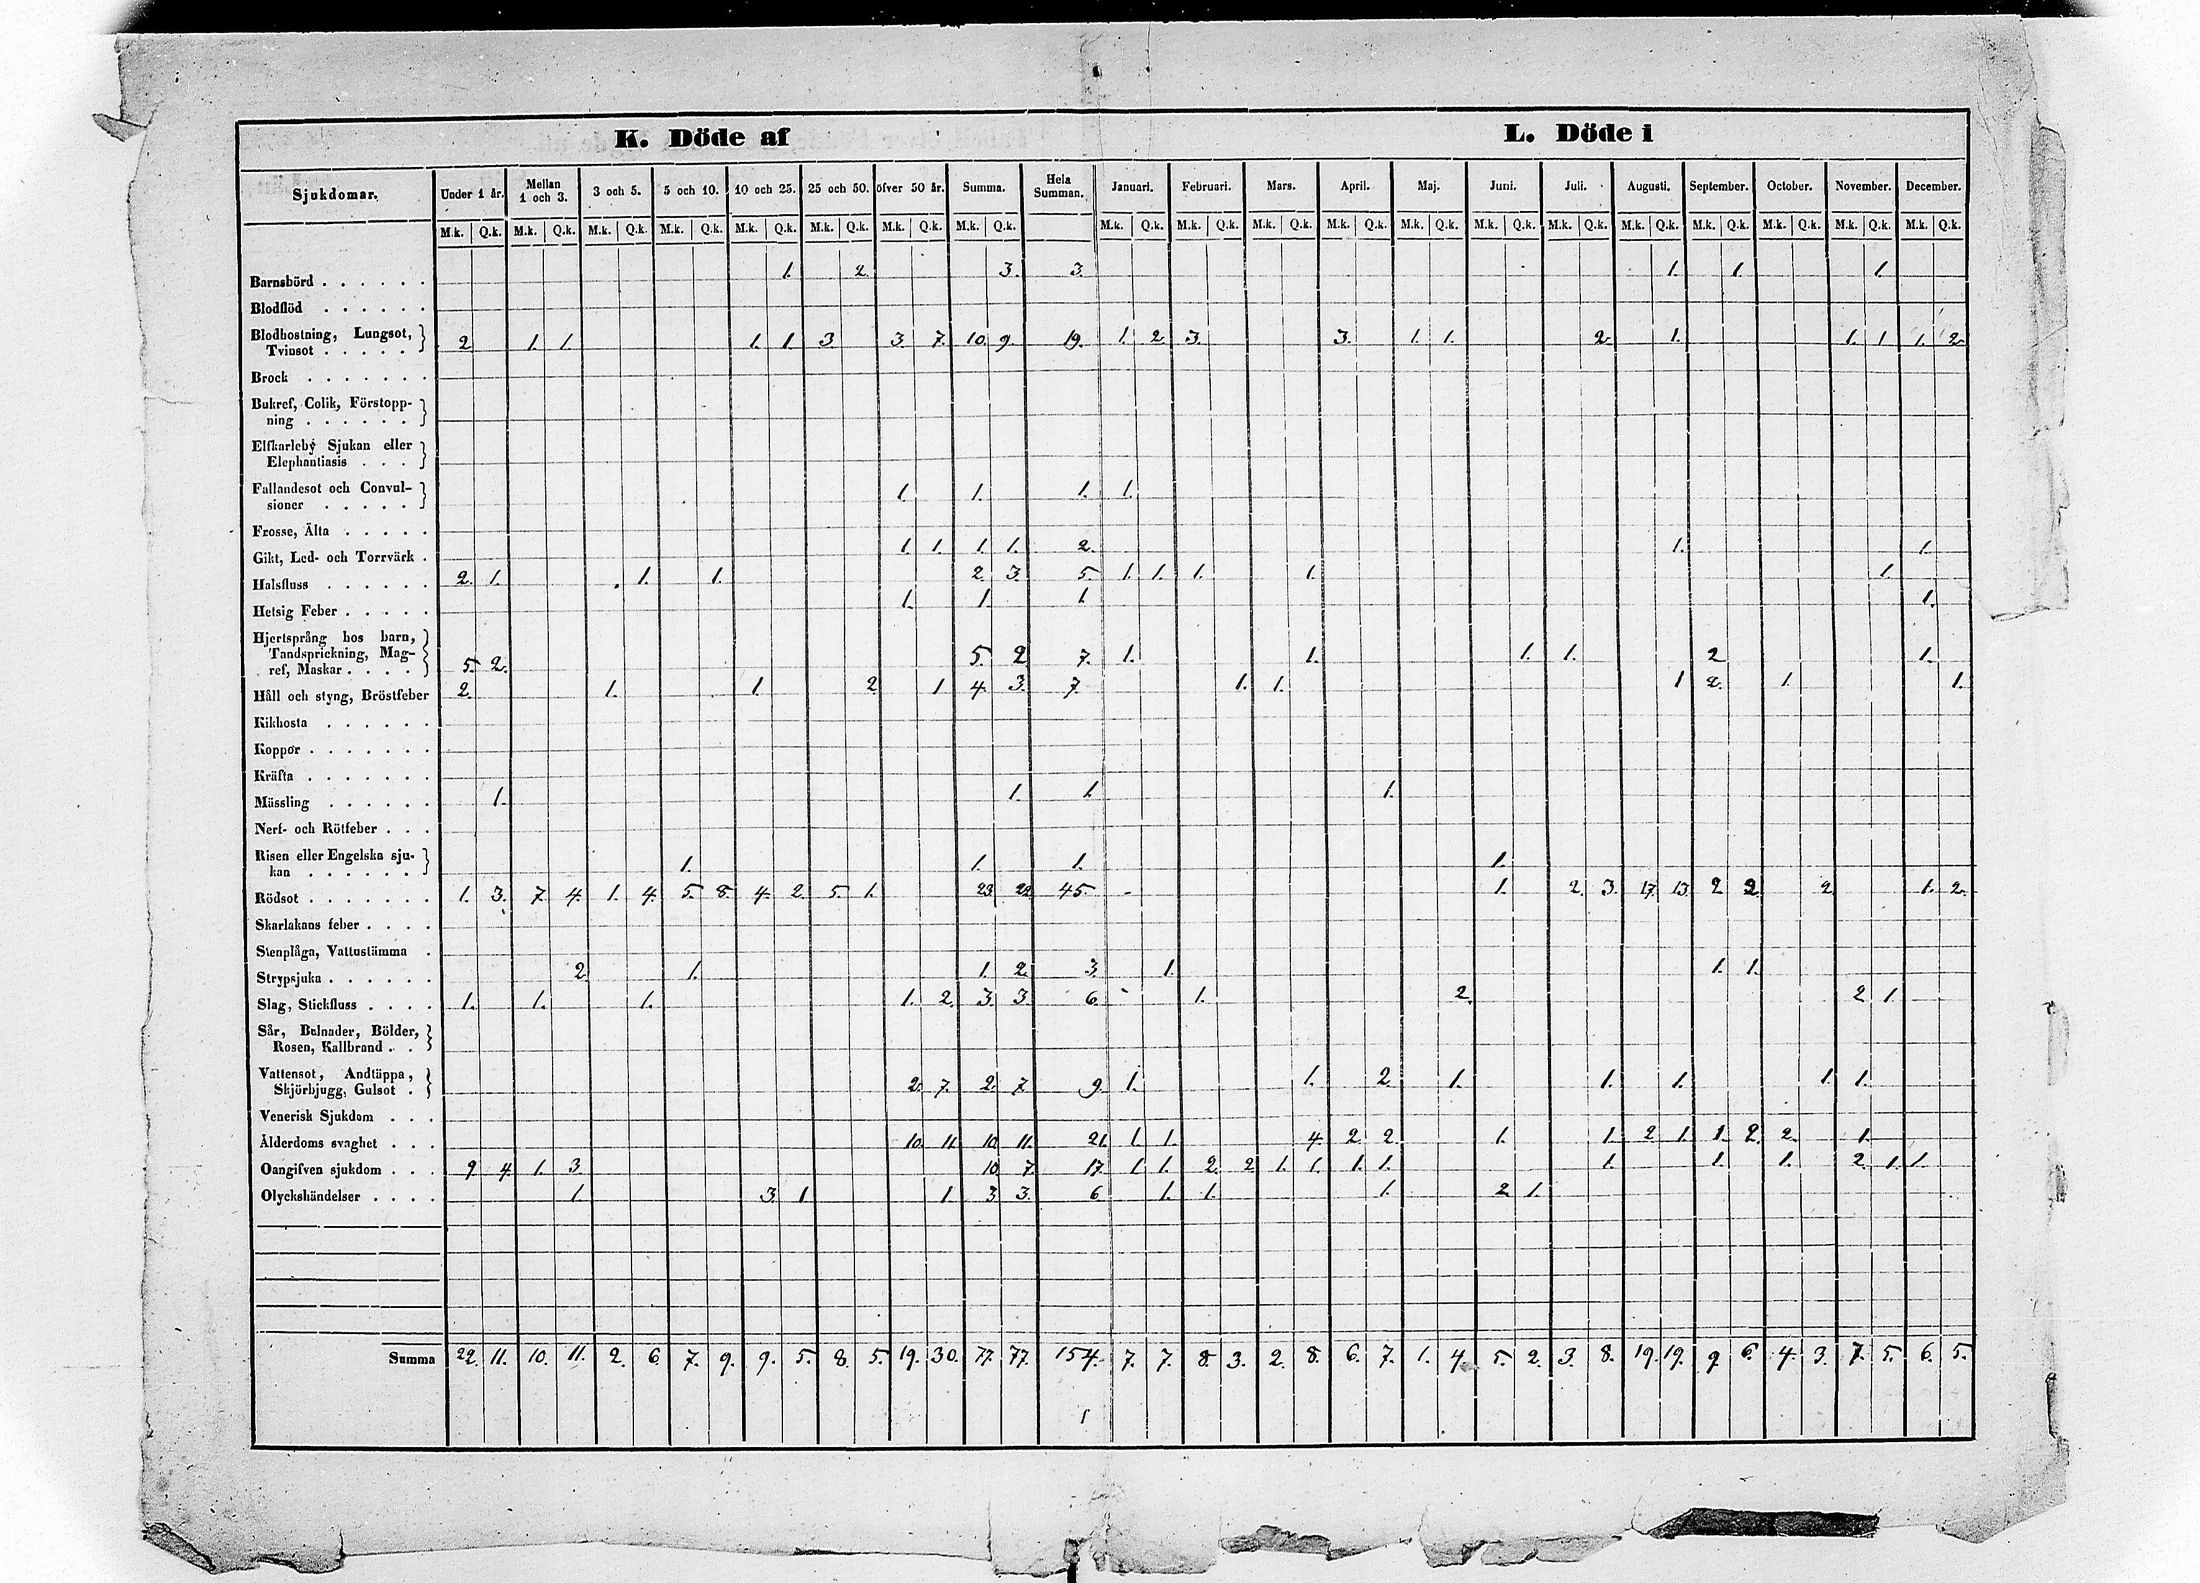 K. Döde af L. Döde i
Sjukdomar. Under 1 år. Mellan 1 och 3. 3 och 5. 5 och 10. 10 och 25. 25 och 50. öfver 50 år. Summa. Hela Summan. Januari. Februari. Mars. April. Maj. Juni. Juli. Augusti. September. October. November. December.
M.k. Q.k. M.k. Q.k. M.k. Q.k. M.k. Q.k. M.k. Q.k. M.k. Q.k. M.k. Q.k. M.k. Q.k. M.k. Q.k. M.k. Q.k. M.k. Q.k. M.k. Q.k. M.k. Q.k. M.k. Q.k. M.k. Q.k. M.k. Q.k. M.k. Q.k. M.k. Q.k. M.k. Q.k. M.k. Q.k.
Barnsbörd . . . . . . 1. 2. 3. 3. 1. 1. 1.
Blodflöd . . . . . .
Blodhostning, Lungsot,
Tvinsot . . . . . 2 1. 1. 1. 1. 3. 3. 7. 10. 9. 19. 1. 2 3. 3. 1. 1. 2. 1. 1. 1 1. 2
Brock . . . . . . .
Bukref, Colik, Förstopp-
ning . . . . . .
Elfkarleby Sjukan eller
Elephantiasis . . .
Fallandesot och Convul-
sioner . . . . . 1. 1. 1. 1.
Frosse, Älta . . . . .
Gikt, Led- och Torrvärk . 1. 1. 1. 1. 2. 1. 1.
Halsfluss . . . . . . 2. 1. 1. 1. 2. 3. 5. 1. 1. 1. 1. 1.
Hetsig Feber . . . . . 1. 1. 1. 1.
Hjertsprång hos barn,
Tandsprickning, Mag-
ref, Maskar . . . . 5. 2. 5. 2 7. 1. 1. 1. 1. 2 1.
Håll och styng, Bröstfeber 2. 1. 1. 2 1 4. 3. 7. 1. 1. 1 2. 1. 1.
Kikhosta . . . . . .
Koppor . . . . . . .
Kräfta . . . . . . .
Mässling . . . . . . 1. 1. 1. 1.
Nerf- och Rötfeber . . .
Risen eller Engelska sju-
kan . . . . . . 1. 1. 1. 1.
Rödsot . . . . . . . 1. 3. 7. 4. 1. 4. 5. 8. 4. 2. 5. 1. 23. 22 45. 1. 2. 3. 17. 13. 2 2. 2 1. 2.
Skarlakans feber . . . .
Stenplåga, Vattustämma .
Strypsjuka . . . . . . 2 1. 1. 2. 3. 1. 1. 1.
Slag, Stickfluss . . . . 1. 1. 1. 1. 2. 3. 3. 6. 1. 2. 2 1.
Sår, Bulnader, Bölder,
Rosen, Kallbrand . .
Vattensot, Andtäppa,
Skjörbjugg, Gulsot . 2. 7. 2. 7. 9. 1. 1. 2. 1. 1. 1. 1. 1.
Venerisk Sjukdom . . .
Ålderdoms svaghet . . . 10. 11. 10 11. 21. 1. 1. 4. 2 2. 1. 1. 2 1. 1. 2. 2. 1.
Oangifven sjukdom . . . 9. 4. 1. 3. 10. 7. 17. 1. 1. 2. 2 1. 1. 1. 1. 1. 1. 1. 2 1. 1.
Olyckshändelser . . . . 1. 3. 1 1 3 3. 6. 1. 1. 1. 2 1.
Summa 22. 11. 10. 11. 2. 6. 7. 9. 9. 5. 8. 5. 19. 30. 77. 77. 154. 7. 7. 8. 3. 2. 8. 6. 7. 1. 4. 5. 2. 3. 8. 19. 19. 9. 6. 4. 3. 7. 5. 6. 5.